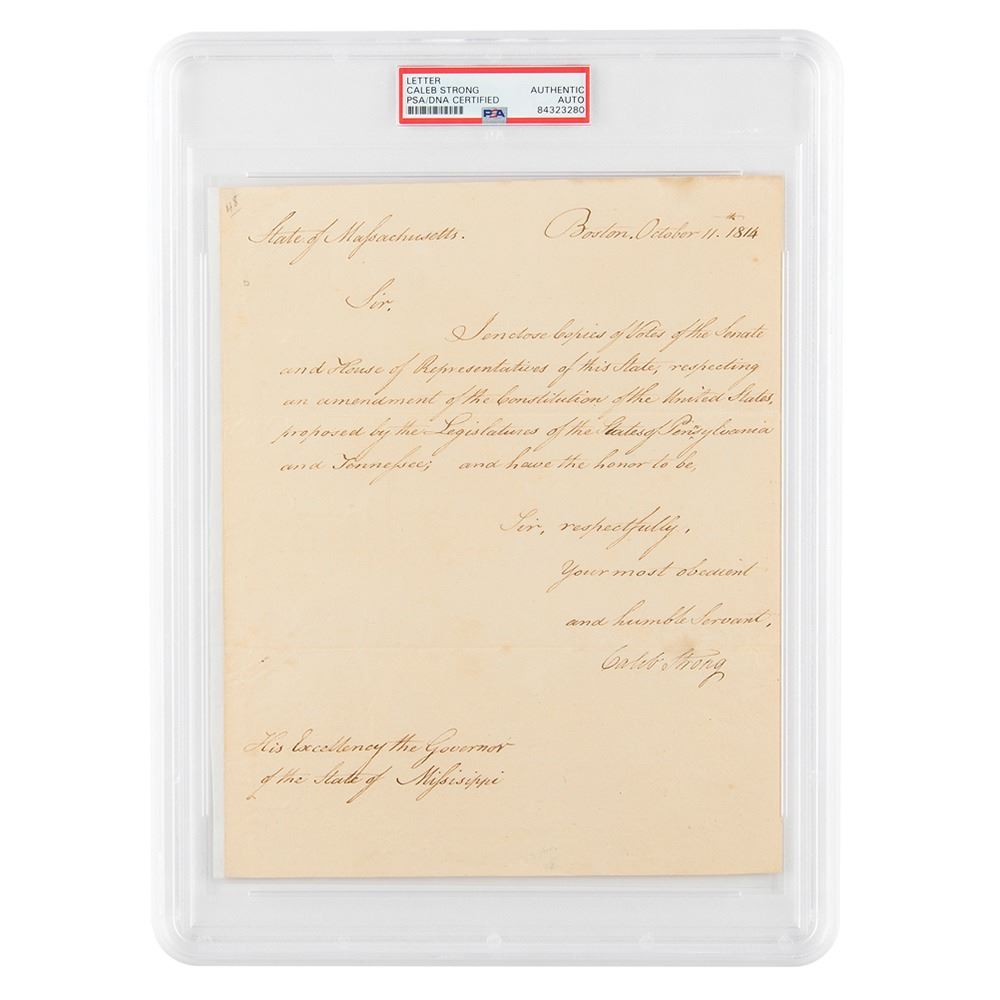 LETTER
CALEB STRONG
PSA/DNA CERTIFIED
AUTHENTIC
AUTO
84323280
PSA
48
State of Maſsachusetts.
Boston, October 11.th 1814
Sir,
I enclose Copies of Votes of the Senate
and House of Representatives of this State, respecting
an amendment of the Constitution of the United States,
proposed by the Legislatures of the States of Pennsylvania
and Tenneſsee; and have the honor to be,
Sir, respectfully,
Your most obedient
and humble Servant,
Caleb Strong
His Excellency the Governor
of the State of Miſsisippi